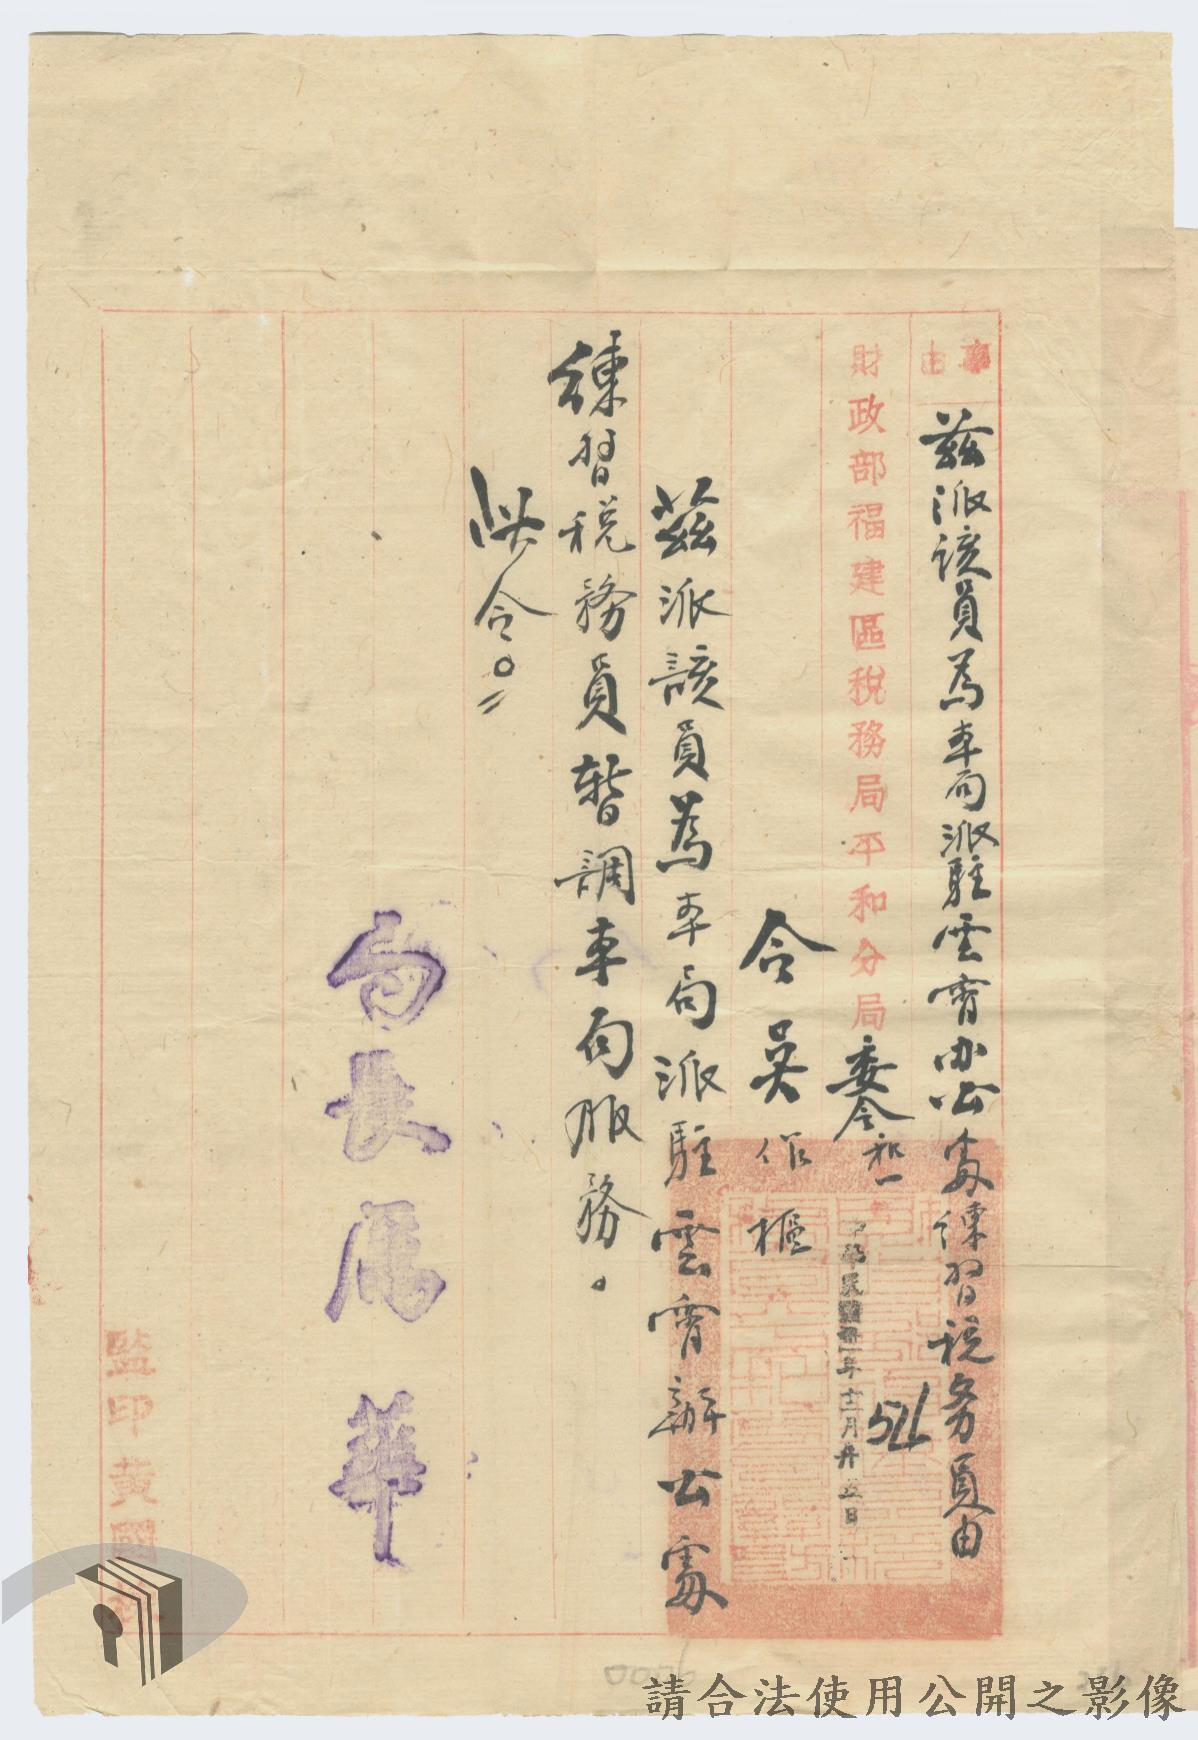 事由
茲派該員為本局派駐雲霄办公處練習稅务員由
財政部福建區稅務局平和分局委令和一
514
中華民國卅一年十二月廿五日
令吳作樞
茲派該員為本局派駐雲霄辦公處
練習稅務員暫調本局服務。
此令。
局長 華
監印黃國
請合法使用公開之影像